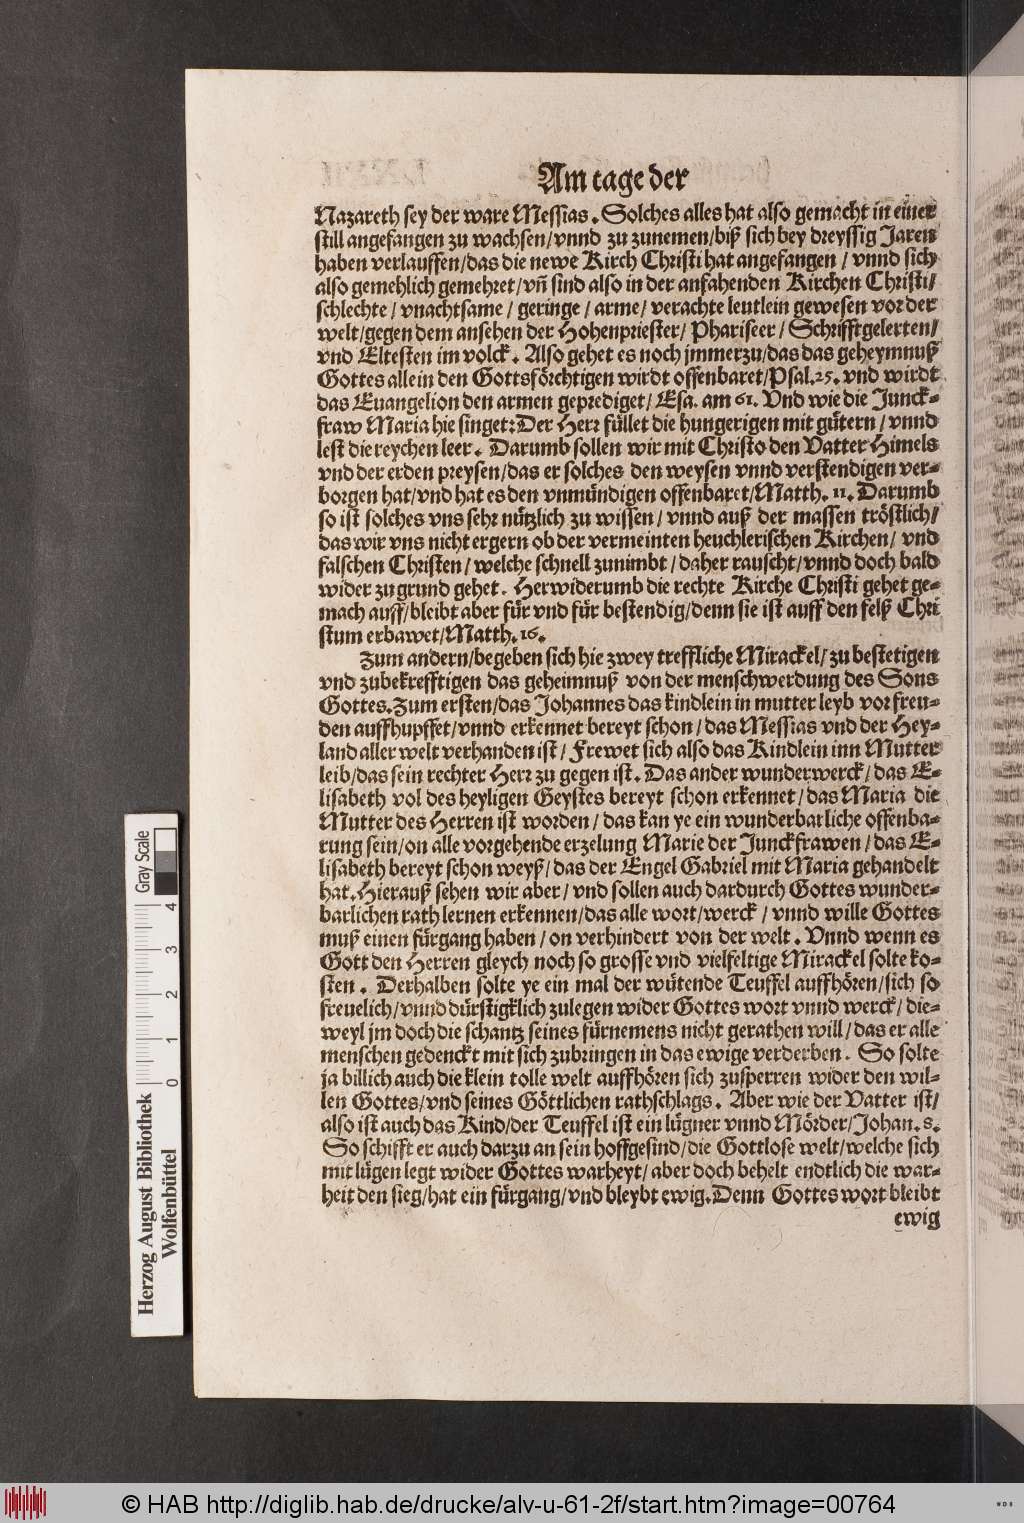 Am tage der
Nazareth sey der ware Messias. Solches alles hat also gemacht in einer
still angefangen zu wachsen/vnnd zu zunemen/biß sich bey dreyssig Jaren
haben verlauffen/das die newe Kirch Christi hat angefangen / vnnd sich
also gemehlich gemehret/vñ sind also in der anfahenden Kirchen Christi/
schlechte / vnachtsame / geringe / arme / verachte leutlein gewesen vor der
welt/gegen dem ansehen der Hohenpriester/ Phariseer / Schrifftgelerten/
vnd Eltesten im volck. Also gehet es noch jmmerzu/das das geheymnuß
Gottes allein den Gottsförchtigen wirdt offenbaret/Psal.25. vnd wirdt
das Euangelion den armen geprediget/ Esa. am 61. Vnd wie die Junck-
fraw Maria hie singet: Der Herr füllet die hungerigen mit gütern / vnnd
lest die reychen leer. Darumb sollen wir mit Christo den Vatter Himels
vnd der erden preysen/das er solches den weysen vnnd verstendigen ver-
borgen hat/vnd hat es den vnmündigen offenbaret/Matth. 11. Darumb
so ist solches vns sehr nützlich zu wissen / vnnd auß der massen tröstlich/
das wir vns nicht ergern ob der vermeinten heuchlerischen Kirchen/ vnd
falschen Christen / welche schnell zunimbt / daher rauscht/vnnd doch bald
wider zu grund gehet. Herwiderumb die rechte Kirche Christi gehet ge-
mach auff/bleibt aber für vnd für bestendig/denn sie ist auff den felß Chri
stum erbawet/Matth. 16.
Zum andern/begeben sich hie zwey treffliche Mirackel/ zu bestetigen
vnd zubekrefftigen das geheimnuß von der menschwerdung des Sons
Gottes. Zum ersten/das Johannes das kindlein in mutter leyb vor freu-
den auffhupffet/vnnd erkennet bereyt schon / das Messias vnd der Hey-
land aller welt verhanden ist/ Frewet sich also das Kindlein inn Mutter
leib/das sein rechter Herr zu gegen ist. Das ander wunderwerck/ das E-
lisabeth vol des heyligen Geystes bereyt schon erkennet/das Maria die
Mutter des Herren ist worden / das kan ye ein wunderbarliche offenba-
rung sein/on alle vorgehende erzelung Marie der Junckfrawen / das E-
lisabeth bereyt schon weyß/das der Engel Gabriel mit Maria gehandelt
hat. Hierauß sehen wir aber/ vnd sollen auch dardurch Gottes wunder-
barlichen rath lernen erkennen/das alle wort/werck / vnnd wille Gottes
muß einen fürgang haben / on verhindert von der welt. Vnnd wenn es
Gott den Herren gleych noch so grosse vnd vielfeltige Mirackel solte ko-
sten. Derhalben solte ye ein mal der wütende Teuffel auffhören/sich so
freuelich/vnnd dürstigklich zulegen wider Gottes wort vnnd werck/ die-
weyl jm doch die schantz seines fürnemens nicht gerathen will/ das er alle
menschen gedenckt mit sich zubringen in das ewige verderben. So solte
ja billich auch die klein tolle welt auffhören sich zusperren wider den wil-
len Gottes/vnd seines Göttlichen rathschlags. Aber wie der Vatter ist/
also ist auch das Kind/der Teuffel ist ein lügner vnnd Mörder/Johan. 8.
So schifft er auch darzu an sein hoffgesind/die Gottlose welt/welche sich
mit lügen legt wider Gottes warheyt/ aber doch behelt endtlich die war-
heit den sieg/hat ein fürgang/vnd bleybt ewig. Denn Gottes wort bleibt
ewig
Herzog August Bibliothek
Wolfenbüttel
0 1 2 3 4
Gray Scale
© HAB http://diglib.hab.de/drucke/alv-u-61-2f/start.htm?image=00764